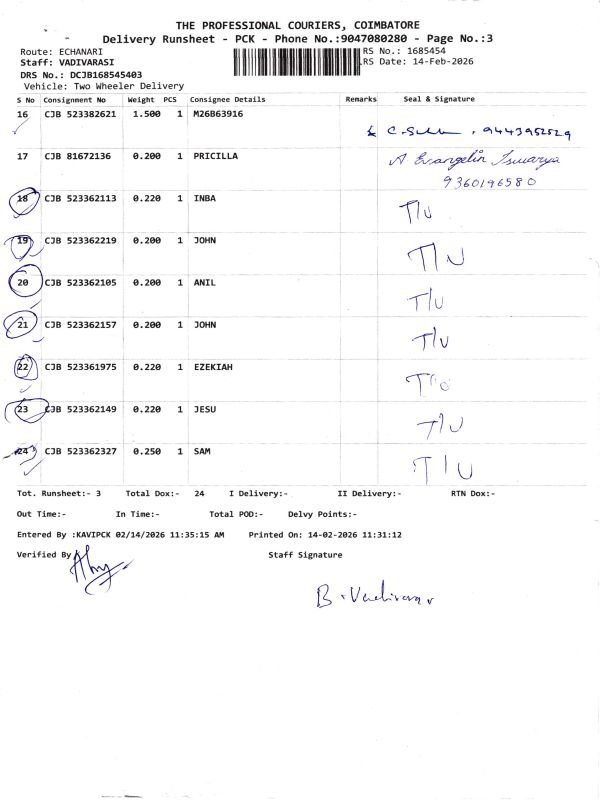 THE PROFESSIONAL COURIERS, COIMBATORE
Delivery Runsheet - PCK - Phone No.:9047080280 - Page No.:3
Route: ECHANARI RS No.: 1685454
Staff: VADIVARASI RS Date: 14-Feb-2026
DRS No.: DCJB168545403
Vehicle: Two Wheeler Delivery
S No Consignment No Weight PCS Consignee Details Remarks Seal & Signature
16 CJB 523382621 1.500 1 M26B63916
9443952529
17 CJB 81672136 0.200 1 PRICILLA A Evangelin Iswarya
9360196580
18 CJB 523362113 0.220 1 INBA T/U
19 CJB 523362219 0.200 1 JOHN T/U
20 CJB 523362105 0.200 1 ANIL T/U
21 CJB 523362157 0.200 1 JOHN T/U
22 CJB 523361975 0.220 1 EZEKIAH T/U
23 CJB 523362149 0.220 1 JESU T/U
24 CJB 523362327 0.250 1 SAM T/U
Tot. Runsheet:- 3 Total Dox:- 24 I Delivery:- II Delivery:- RTN Dox:-
Out Time:- In Time:- Total POD:- Delvy Points:-
Entered By :KAVIPCK 02/14/2026 11:35:15 AM Printed On: 14-02-2026 11:31:12
Verified By Staff Signature
B. Vadivarasi